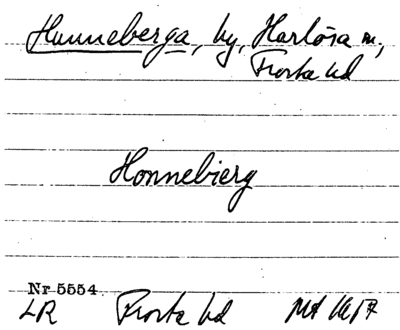 Hunneberga, by, Harlösa sn,
Frosta hd
Honnebierg
Nr 5554
LR Frosta hd